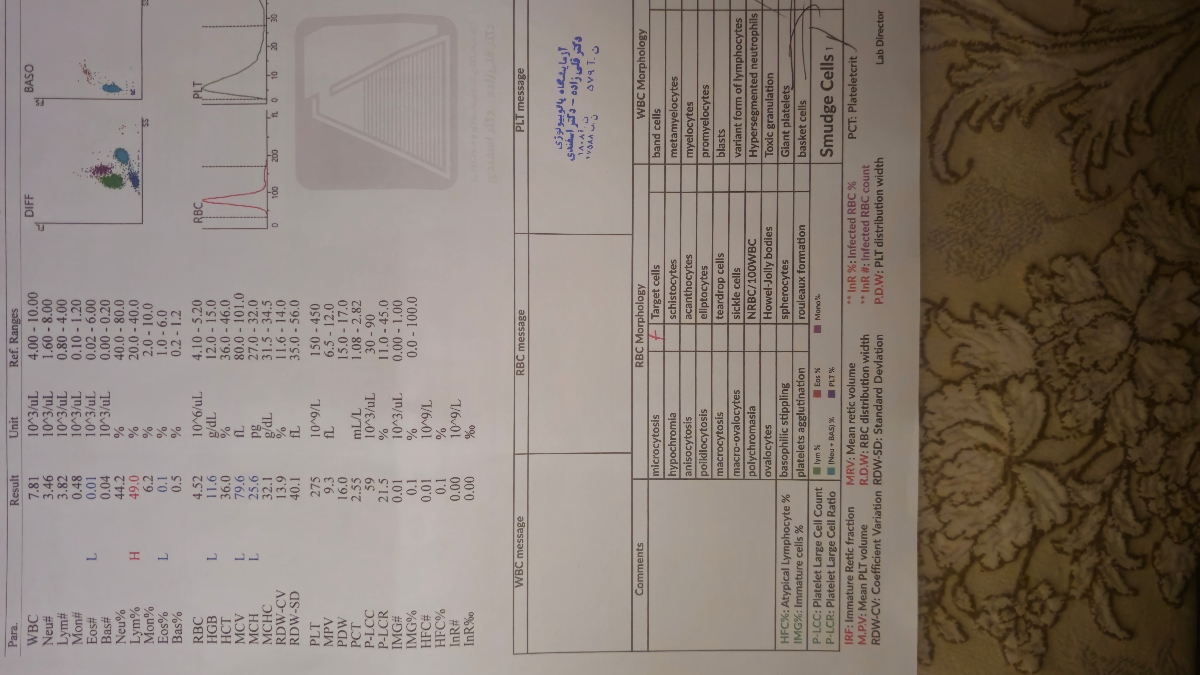 Para. Result Unit Ref. Ranges
WBC 7.81 10^3/uL 4.00 - 10.00
Neu# 3.46 10^3/uL 1.60 - 8.00
Lym# 3.82 10^3/uL 0.80 - 4.00
Mon# 0.48 10^3/uL 0.10 - 1.20
Eos# L 0.01 10^3/uL 0.02 - 6.00
Bas# 0.04 10^3/uL 0.00 - 0.20
Neu% 44.2 % 40.0 - 80.0
Lym% H 49.0 % 20.0 - 40.0
Mon% 6.2 % 2.0 - 10.0
Eos% L 0.1 % 1.0 - 6.0
Bas% 0.5 % 0.2 - 1.2
RBC 4.52 10^6/uL 4.10 - 5.20
HGB L 11.6 g/dL 12.0 - 15.0
HCT 36.0 % 36.0 - 46.0
MCV L 79.6 fL 80.0 - 101.0
MCH L 25.6 pg 27.0 - 32.0
MCHC 32.1 g/dL 31.5 - 34.5
RDW-CV 13.9 % 11.6 - 14.0
RDW-SD 40.1 fL 35.0 - 56.0
PLT 275 10^9/L 150 - 450
MPV 9.3 fL 6.5 - 12.0
PDW 16.0 15.0 - 17.0
PCT 2.55 mL/L 1.08 - 2.82
P-LCC 59 10^3/uL 30 - 90
P-LCR 21.5 % 11.0 - 45.0
IMG# 0.01 10^3/uL 0.00 - 1.00
IMG% 0.1 % 0.0 - 100.0
HFC# 0.01 10^9/L
HFC% 0.1 %
InR# 0.00 10^9/L
InR‰ 0.00 ‰
DIFF BASO
FS SS
RBC PLT
0 100 200 fL 0 10 20 30 fL
WBC message RBC message PLT message
آزمایشگاه پاتوبیولوژی
Comments RBC Morphology WBC Morphology
microcytosis + Target cells band cells
hypochromia schistocytes metamyelocytes
anisocytosis acanthocytes myelocytes
polkilocytosis eliptocytes promyelocytes
macrocytosis teardrop cells blasts
macro-ovalocytes sickle cells variant form of lymphocytes
polychromasia NRBC/100WBC Hypersegmented neutrophils
ovalocytes Howel-Jolly bodies Toxic granulation
basophilic stippling spherocytes Giant platelets
platelets agglutination rouleaux formation basket cells
HFC%: Atypical Lymphocyte %
IMG%: Immature cells %
P-LCC: Platelet Large Cell Count lym % Eos % Mono% Smudge Cells
P-LCR: Platelet Large Cell Ratio (Neu + BAS) % PLT %
IRF: Immature Retic fraction MRV: Mean retic volume ** InR %: Infected RBC % PCT: Plateletcrit
M.P.V: Mean PLT volume R.D.W: RBC distribution width ** InR #: Infected RBC count
RDW-CV: Coefficient Variation RDW-SD: Standard Deviation P.D.W: PLT distribution width Lab Director